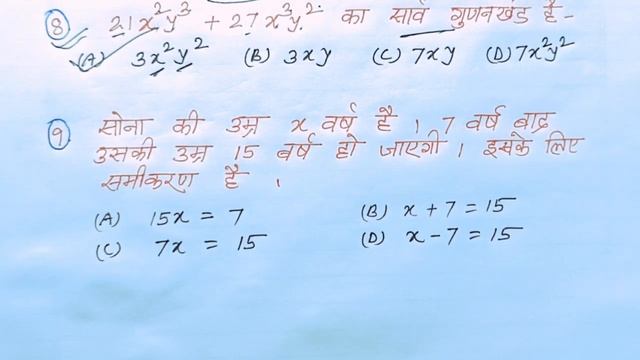 (8) 21x²y³ + 27x³y² का सार्व गुणनखंड है -
(A) 3x²y² (B) 3xy (C) 7xy (D) 7x²y²
(9) सोना की उम्र x वर्ष है । 7 वर्ष बाद
उसकी उम्र 15 वर्ष हो जाएगी । इसके लिए
समीकरण है ।
(A) 15x = 7 (B) x + 7 = 15
(C) 7x = 15 (D) x - 7 = 15